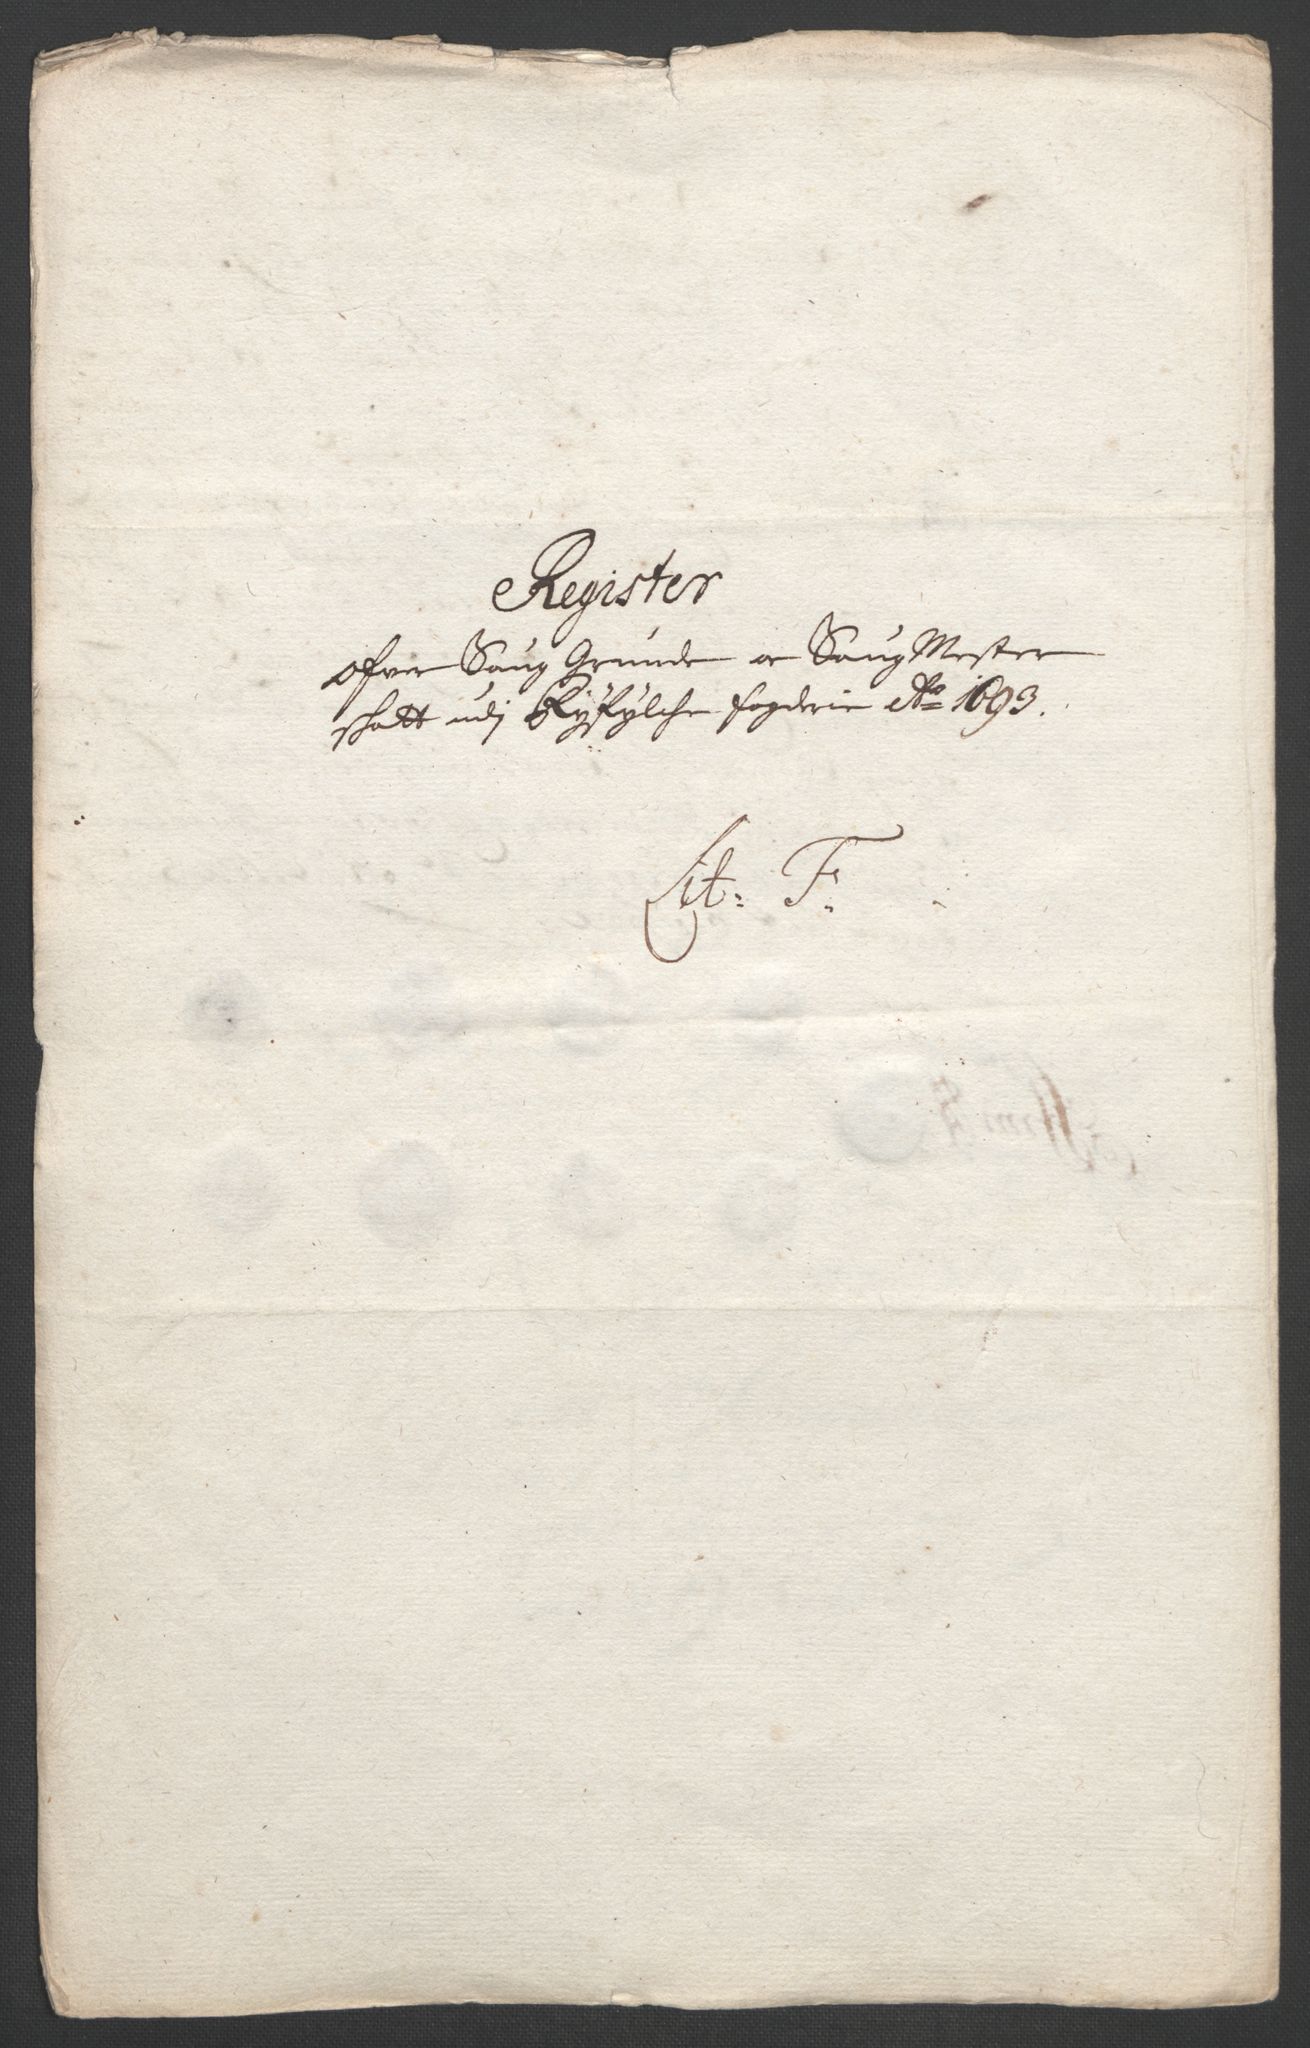 Register
ofver Saug Grunde oc Saug Mester
skatt udj Ryfylche fogderie Ao 1693.
Lit: F: